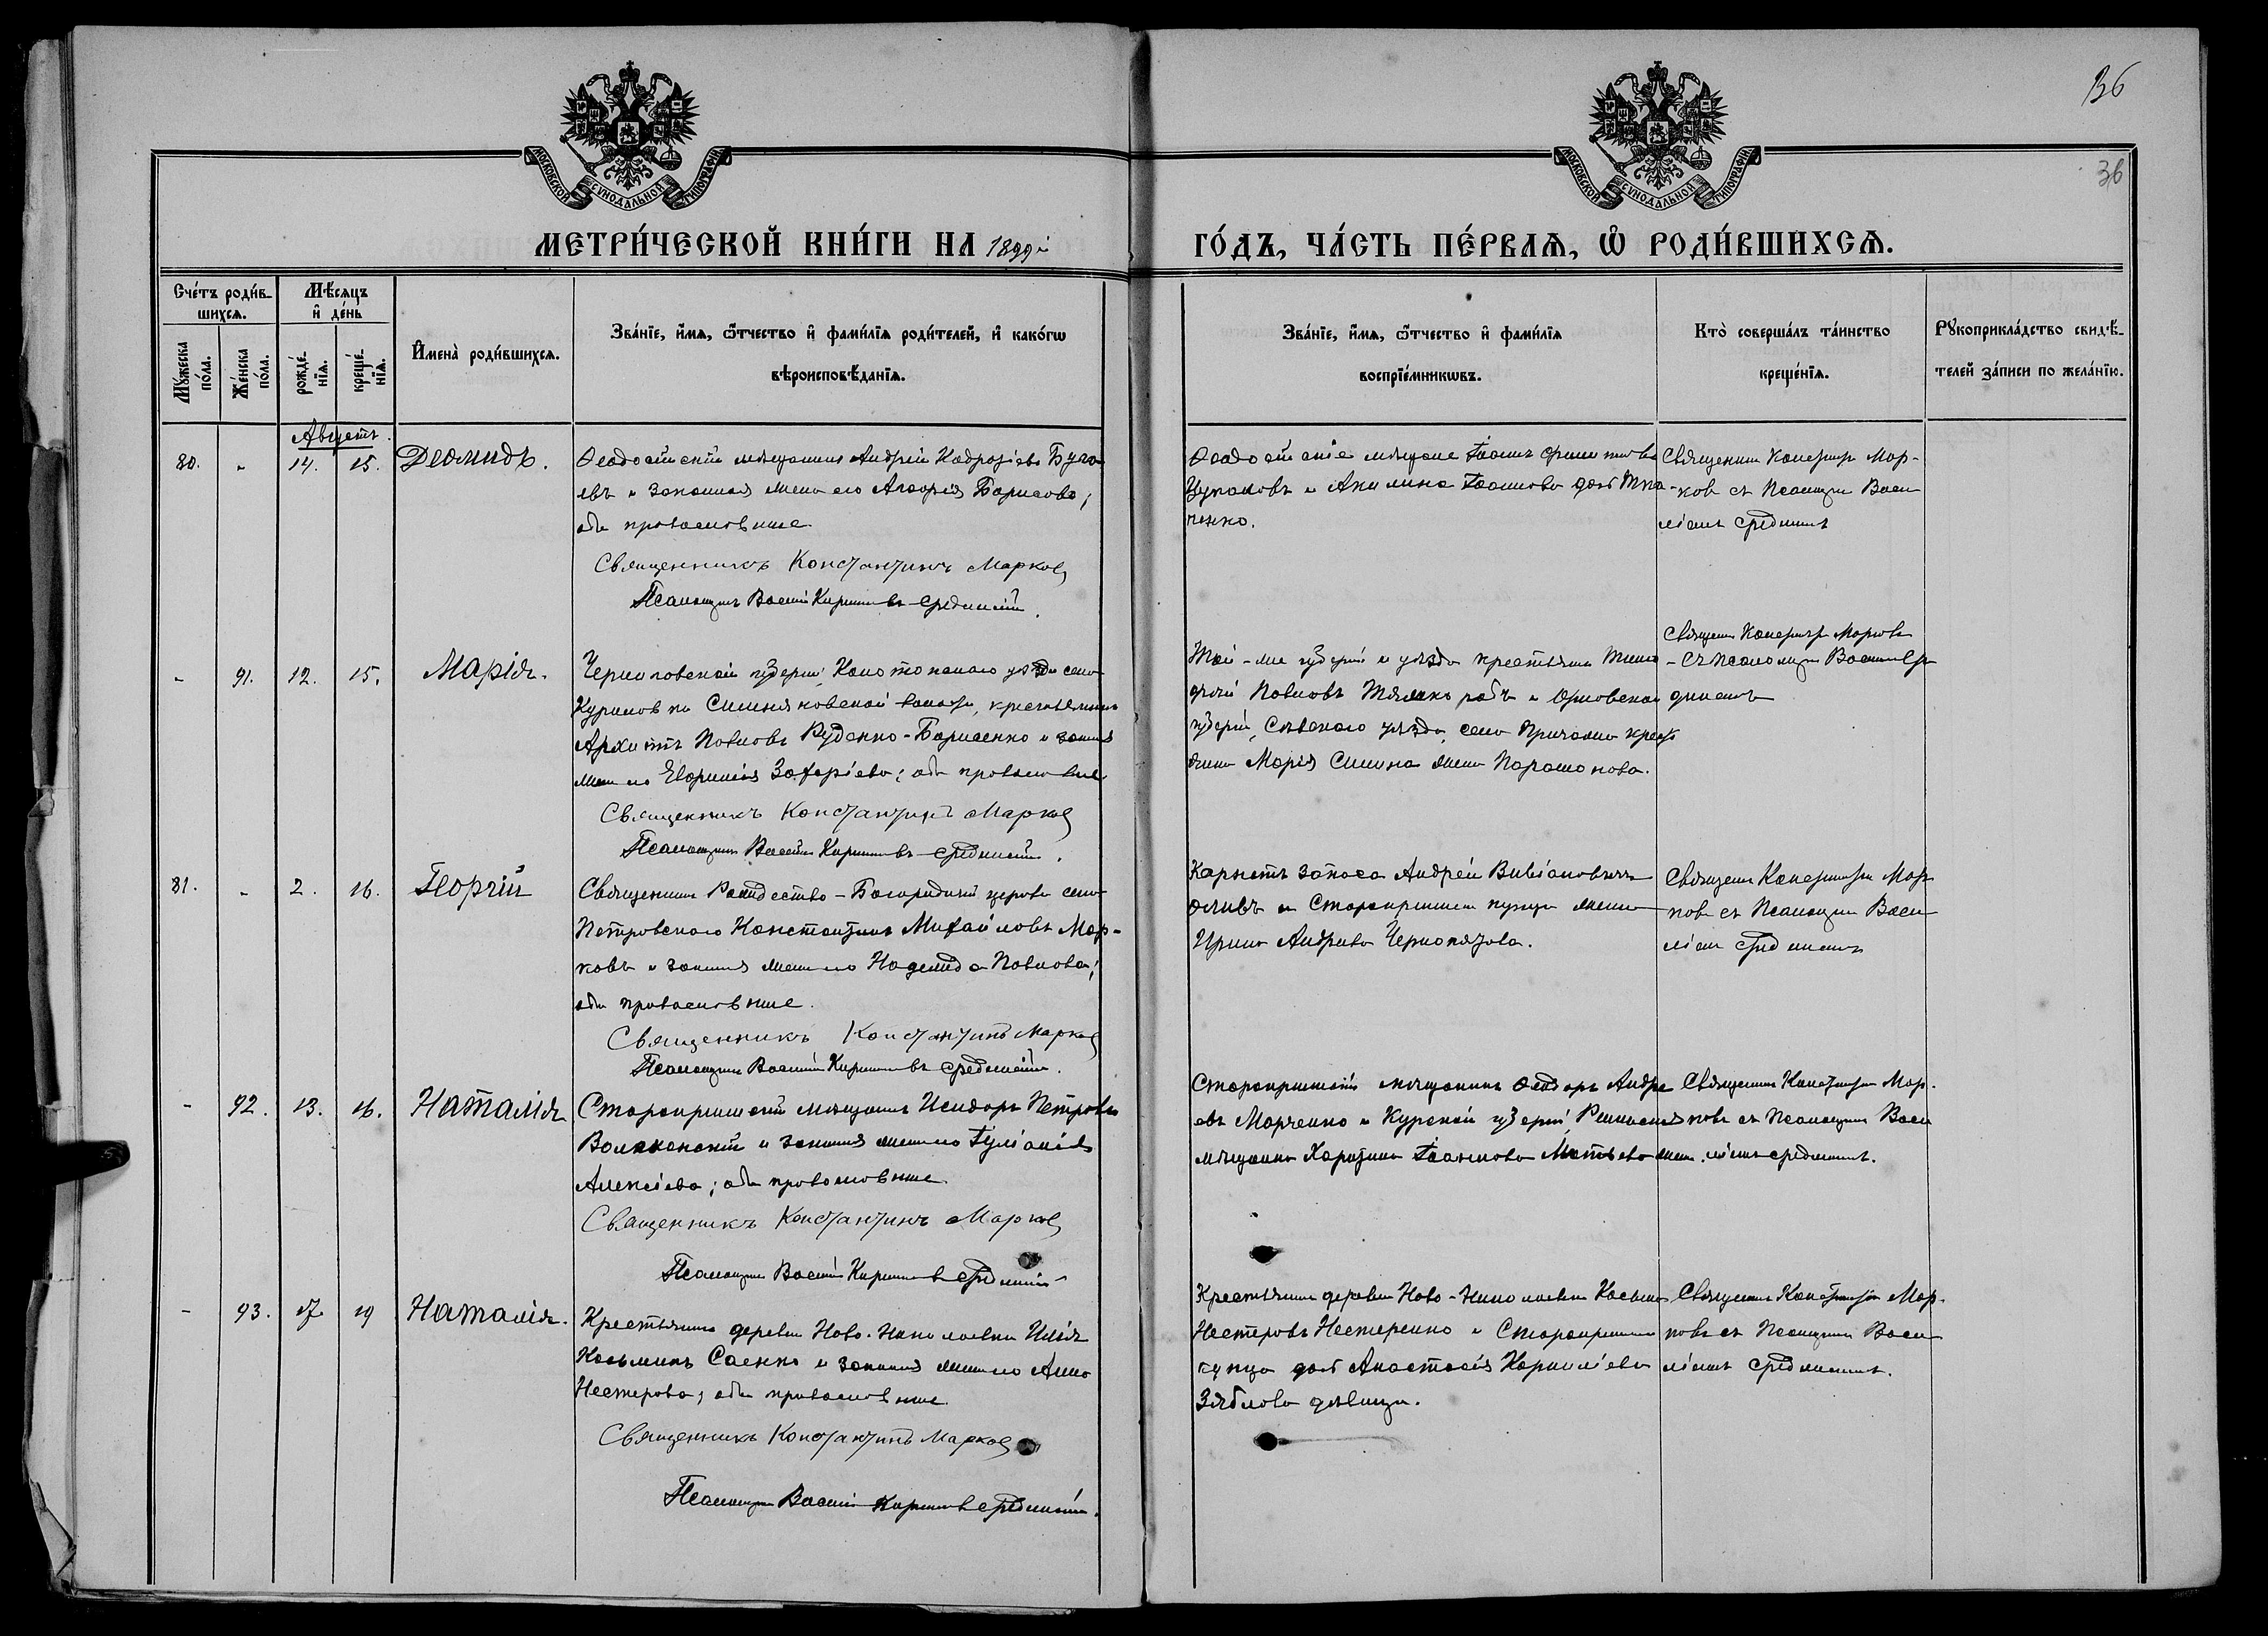 136
36
МОСКОВСКОЙ СѴНОДАЛЬНОЙ ТИПОГРАФІИ
МОСКОВСКОЙ СѴНОДАЛЬНОЙ ТИПОГРАФІИ
МЕТРИ́ЧЕСКОЙ КНИ́ГИ НА 1899й
ГО́ДЪ, ЧА́СТЬ ПЕ́РВАѦ, Ѡ҆ РОДИ́ВШИХСѦ.
Сче́тъ роди́в-
шихсѧ.
Мѣ́сѧцъ
и҆ де́нь
Мꙋ́жеска по́ла.
Же́нска по́ла.
рожде́-
нїѧ.
креще́-
нїѧ.
И҆мена̀ роди́вшихсѧ.
Зва́нїе, и҆́мѧ, ѻ҆́тчество и҆ фами́лїѧ роди́телей, и҆ како́гѡ
вѣроисповѣ́данїѧ.
Зва́нїе, и҆́мѧ, ѻ҆́тчество и҆ фами́лїѧ
воспрїе́мникѡвъ.
Кто̀ соверша́лъ та́инство
креще́нїѧ.
Рꙋкоприкла́дство свидѣ́-
телей за́писи по жела́нїю.
Августъ.
80. - 14. 15. Деомидъ.
Ѳеодосійскій мѣщанинъ Андрей
евъ и законная жена его Борисова;
оба православные.
Священникъ Константинъ Марковъ
Псаломщикъ Василій Кирилловъ Срединскій.
Ѳеодосійскіе мѣщане Іоаннъ
и Акилина Іоаннова дочь Тка-
ченко.
Священникъ Констант. Мар-
ковъ съ Псаломщик. Васи-
ліемъ Срединскимъ
- 91. 12. 15. Марія.
Черниговской губерніи, Конотопскаго уѣзда села
волости, крестьянинъ
Архиппъ Павловъ Руденко-Борисенко и законная
жена его Евфимія Захаріева; оба православные.
Священникъ Константинъ Марковъ
Псаломщикъ Василій Кирилловъ Срединскій.
Той-же губерніи и уѣзда крестьянинъ Тимо-
фей Павловъ и Орловской
губерніи, Сѣвскаго уѣзда, села кресть-
янина Марія Симина жена Парамонова.
Священ. Констант. Марковъ
съ Псаломщик. Василіем. Сре-
динскимъ
81. - 2. 16. Георгій
Священникъ Рождество-Богородичной церкви села
Петровскаго Константинъ Михайловъ Мар-
ковъ и законная жена его Надежда Павлова;
оба православные.
Священникъ Константинъ Марковъ
Псаломщикъ Василій Кирилловъ Срединскій.
Корнетъ запаса Андрей Вивіановичъ
и Старокрымскаго купца жена
Ирина Андреева
Священ. Константин. Мар-
ковъ съ Псаломщик. Васи-
ліем. Срединскимъ
- 92. 13. 16. Наталія
Старокрымскій мѣщанинъ Исидоръ Петровъ
и законная жена его Іуліанія
Алексіева; оба православные.
Священникъ Константинъ Марковъ
Псаломщикъ Василій Кирилловъ Срединскій
Старокрымскій мѣщанинъ Ѳеодоръ Андре-
евъ Марченко и Курской губерніи,
мѣщанка Харитина Іоаннова
Священникъ Константин. Мар-
ковъ съ Псаломщик. Васи-
ліемъ Срединскимъ.
- 93. 17 19 Наталія.
Крестьянинъ деревни Ново-Николаевки Илія
Косьминъ Саенко и законная жена его Анна
Нестерова; оба православные.
Священникъ Константинъ Марковъ
Псаломщикъ Василій Кирилловъ Срединскій.
Крестьянинъ деревни Ново-Николаевки Косьма
Нестеровъ Нестеренко и Старокрымскаго
купца дочь Анастасія Корниліева
Зяблова дѣвица.
Священникъ Константин. Мар-
ковъ съ Псаломщик. Васи-
ліемъ Срединскимъ.